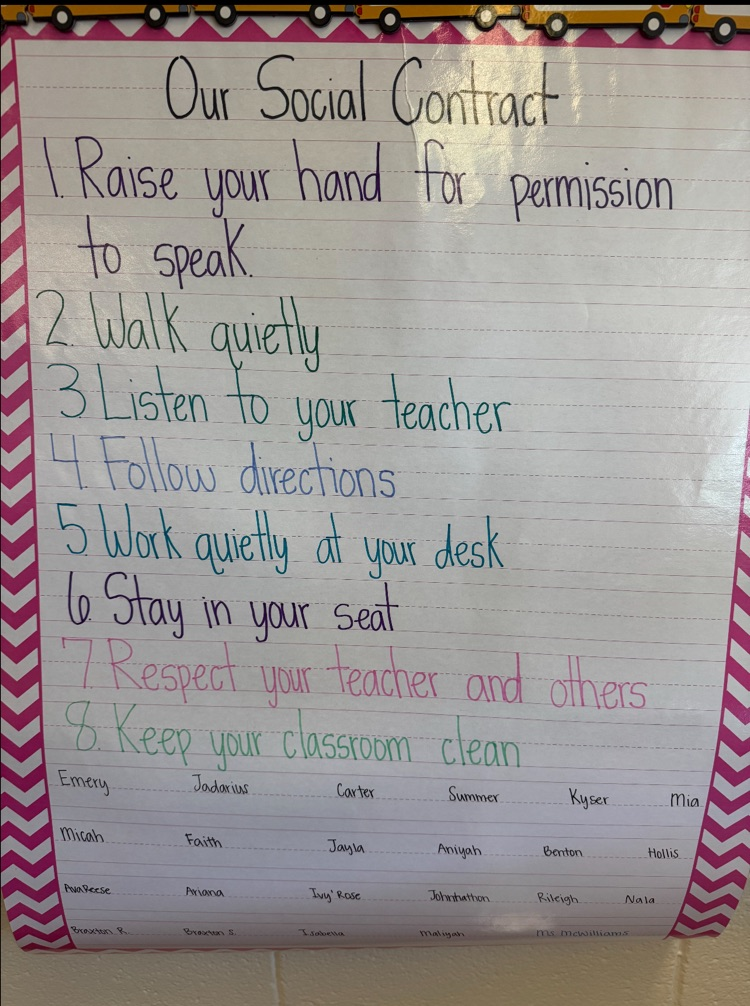 Our Social Contract
1. Raise your hand for permission
to speak.
2. Walk quietly
3 Listen to your teacher
4. Follow directions
5 Work quietly at your desk
6. Stay in your seat
7 Respect your teacher and others
8. Keep your classroom clean
Emery Jadarius Carter Summer Kyser Mia
Micah Faith Jayla Aniyah Benton Hollis
AvaReese Ariana Ivy'Rose Johnhathon Rileigh Nala
Braxton R. Braxton S. Isabella Maliyah Ms. McWilliams